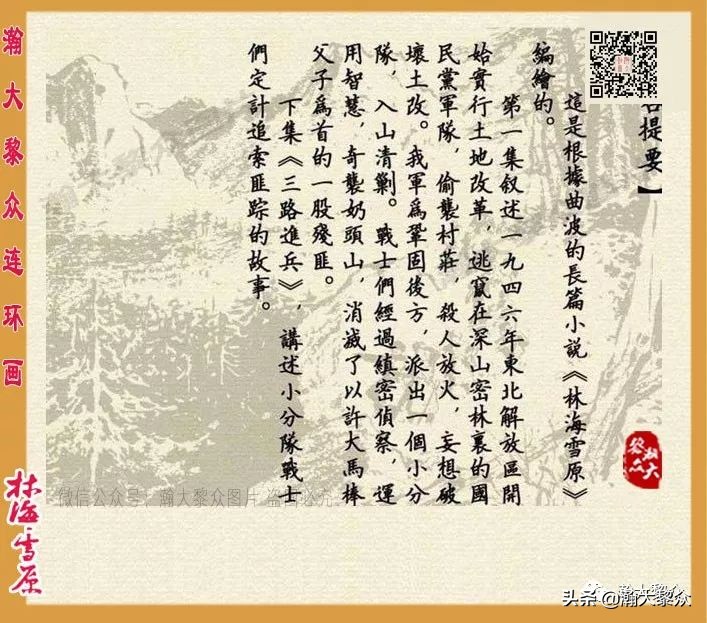 瀚大黎众连环画
林海雪原
提要】
這是根據曲波的長篇小説《林海雪原》
編繪的。
第一集叙述一九四六年東北解放區開
始實行土地改革，逃竄在深山密林裏的國
民黨軍隊，偷襲村莊，殺人放火，妄想破
壞土改。我軍爲鞏固後方，派出一個小分
隊，入山清剿。戰士們經過縝密偵察，運
用智慧，奇襲奶頭山，消滅了以許大馬棒
父子爲首的一股殘匪。
下集《三路進兵》，講述小分隊戰士
們定計追索匪踪的故事。
瀚大
黎众
微信公众号：瀚大黎众图片 盗图必究
瀚大黎众
头条 @瀚大黎众